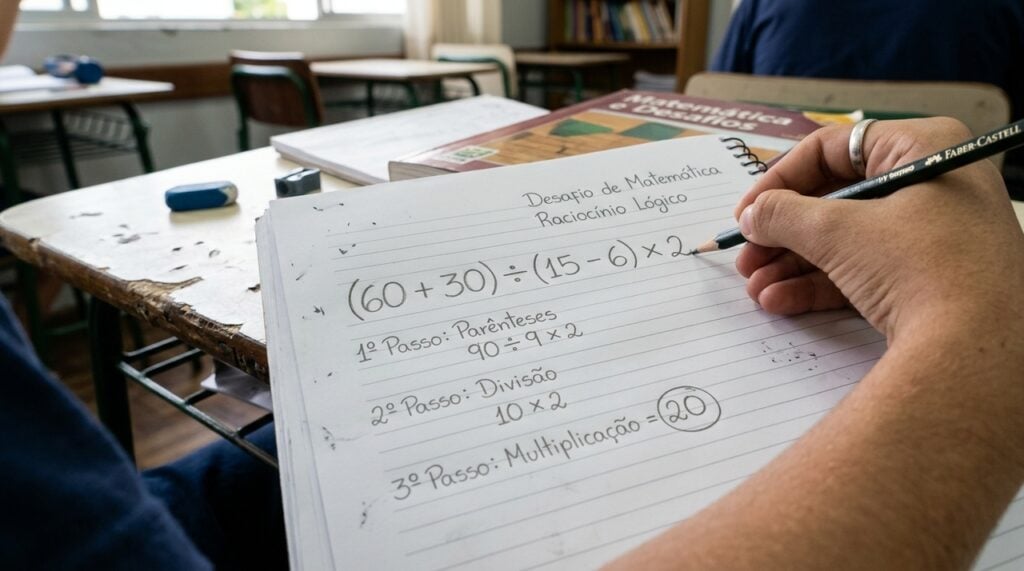 Matemática
e Desafios
Desafio de Matemática
Raciocínio Lógico
(60 + 30) ÷ (15 - 6) × 2
1º Passo: Parênteses
90 ÷ 9 × 2
2º Passo: Divisão
10 × 2
3º Passo: Multiplicação = 20
FABER-CASTELL